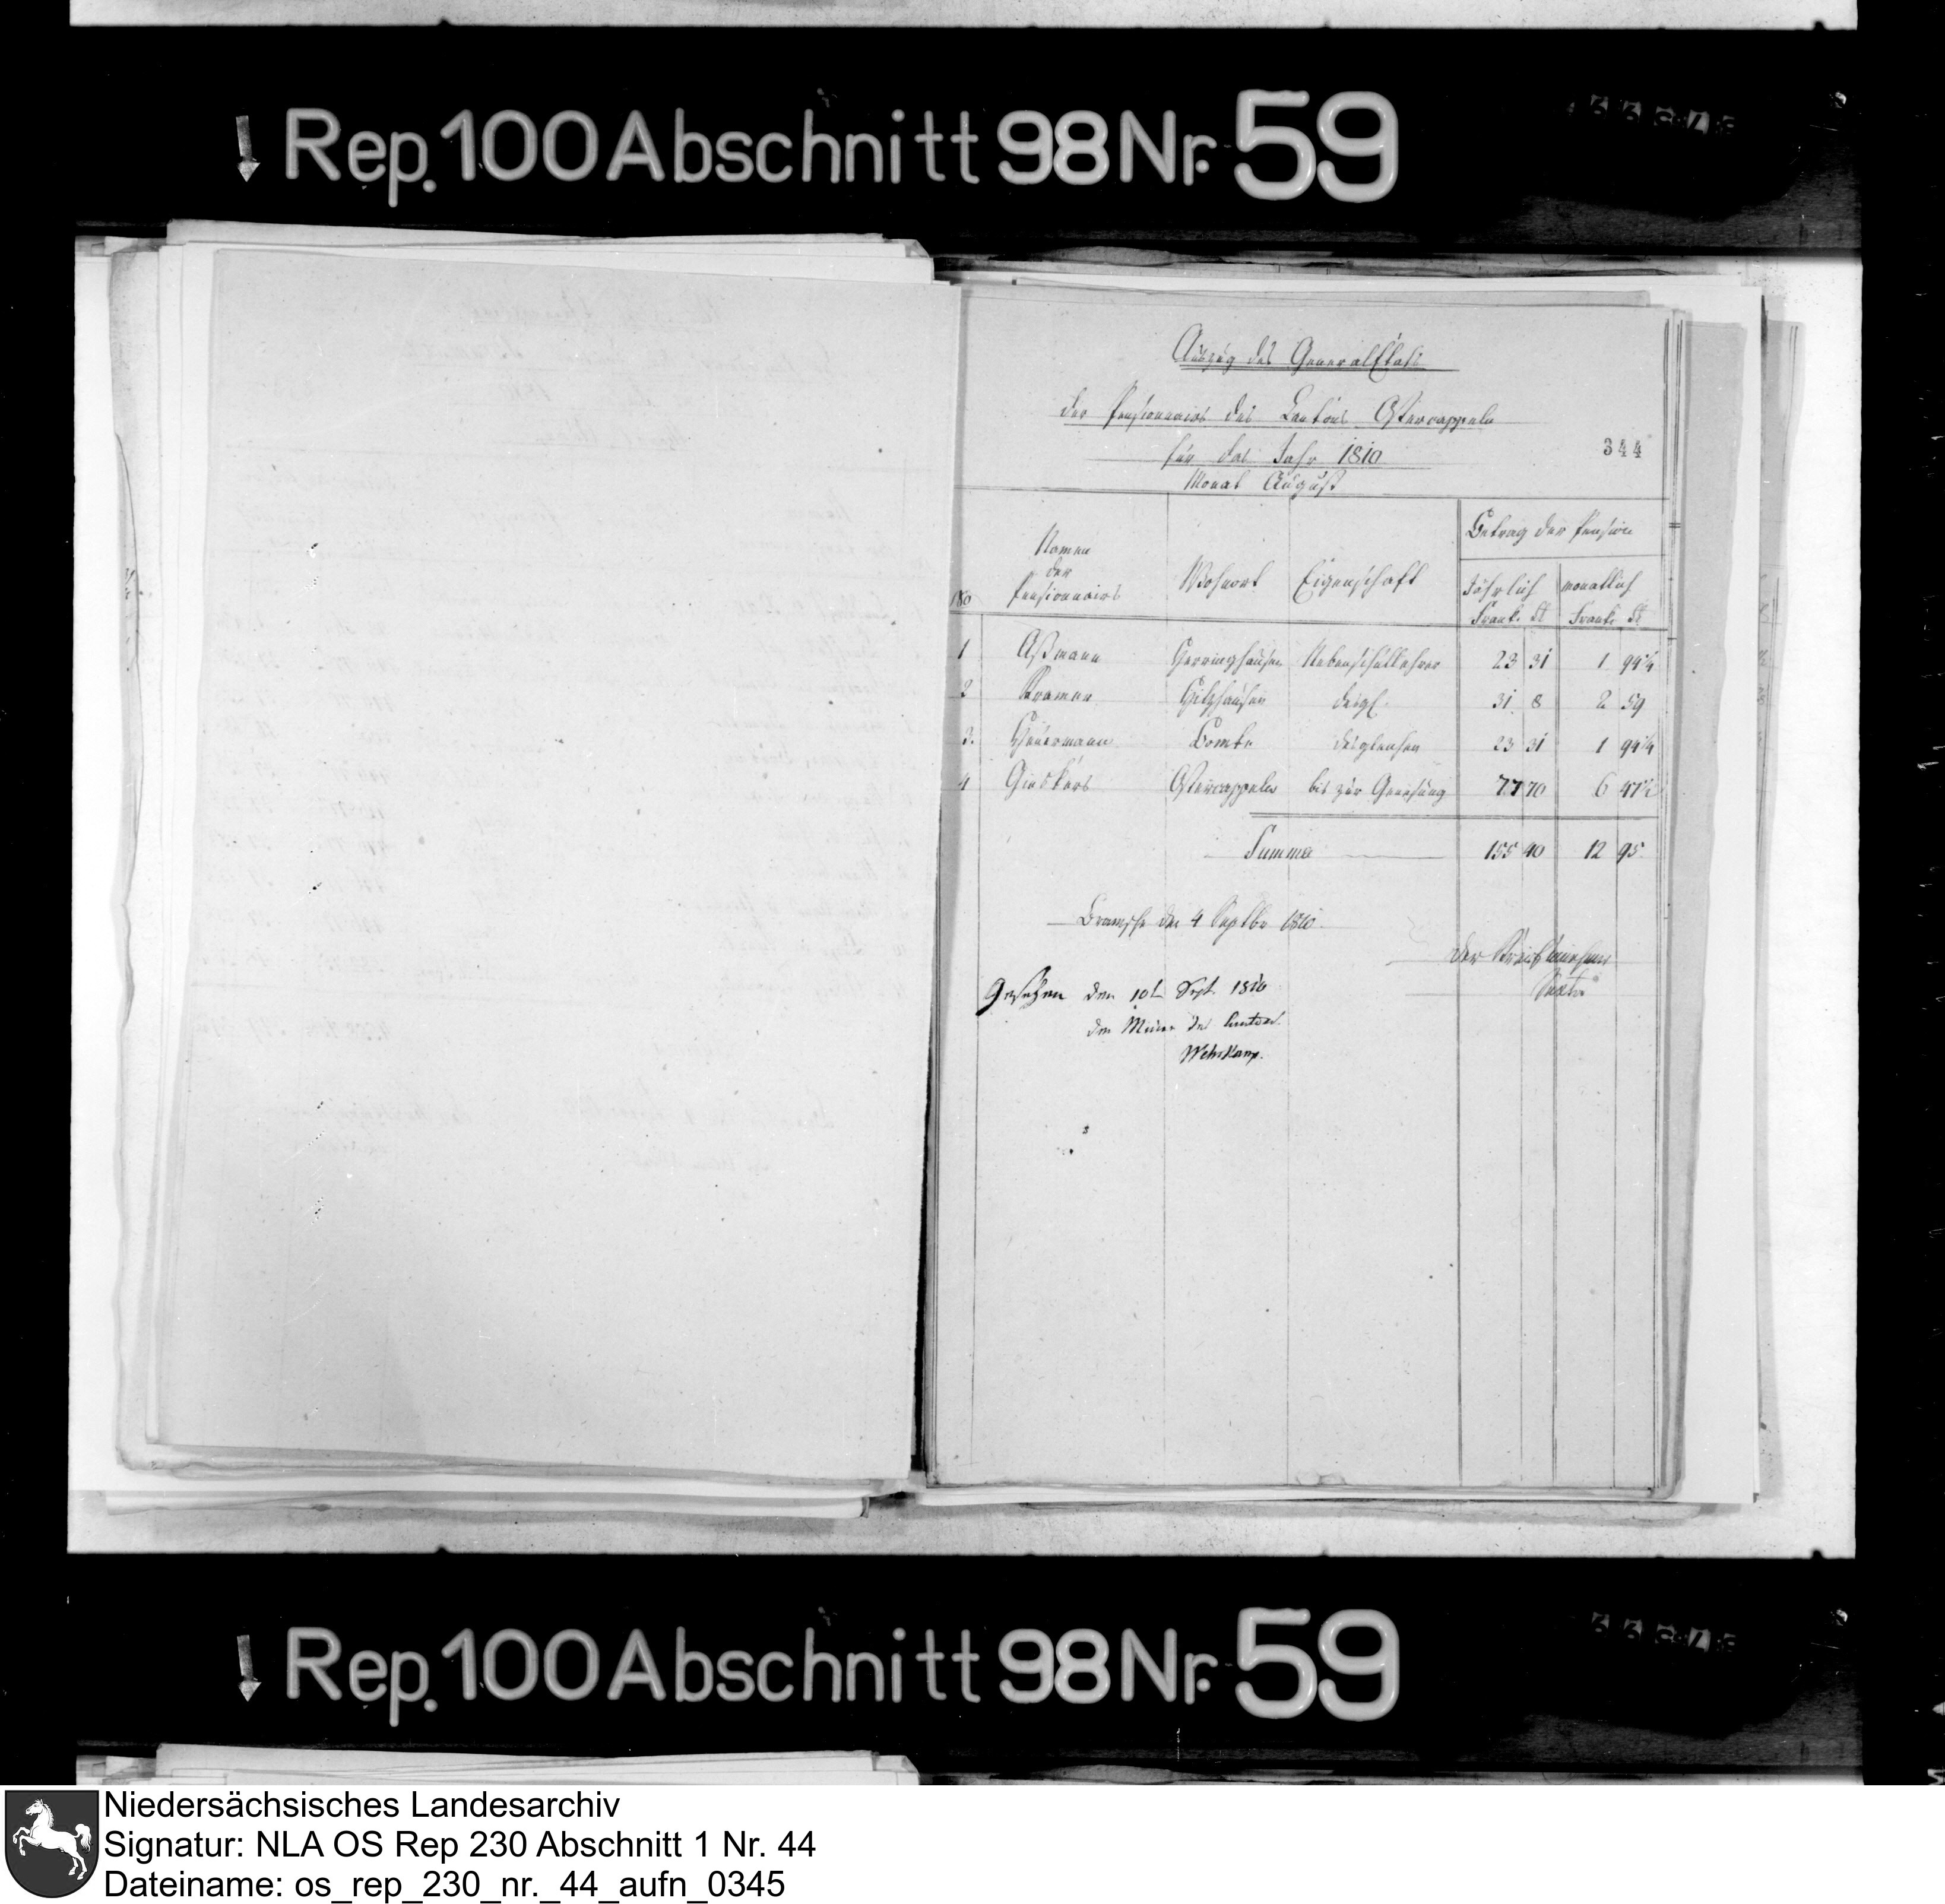 Rep. 100 Abschnitt 98 Nr. 59
Auszug des General Etats
der Pensionnairs des Cantons Ostercappeln
für das Jahr 1810
344
Monat August
Betrag der Pension
Namen
der
Pensionnairs
Wohnort
Eigenschaft
jährlich
monatlich
Frank.
Frank.
1 Aßmann Herringhausen Nebenschullehrer 23 31 1 94 1/4
2 Kramer Hitzhausen desgl. 31 8 2 59
3. Heuermann Bomte desgleichen 23 31 1 94 1/4
4 Gieskers Ostercappeln bis zur Genesung 77 70 6 47 1/2
Summa 155 40 12 95
Bramsche den 4 Septbr 1810
Der Kreiseinnehmer
Gesehen den 10t Sept. 1810
der Maire des Cantons
Wehrkamp.
Rep. 100 Abschnitt 98 Nr. 59
Niedersächsisches Landesarchiv
Signatur: NLA OS Rep 230 Abschnitt 1 Nr. 44
Dateiname: os_rep_230_nr._44_aufn_0345